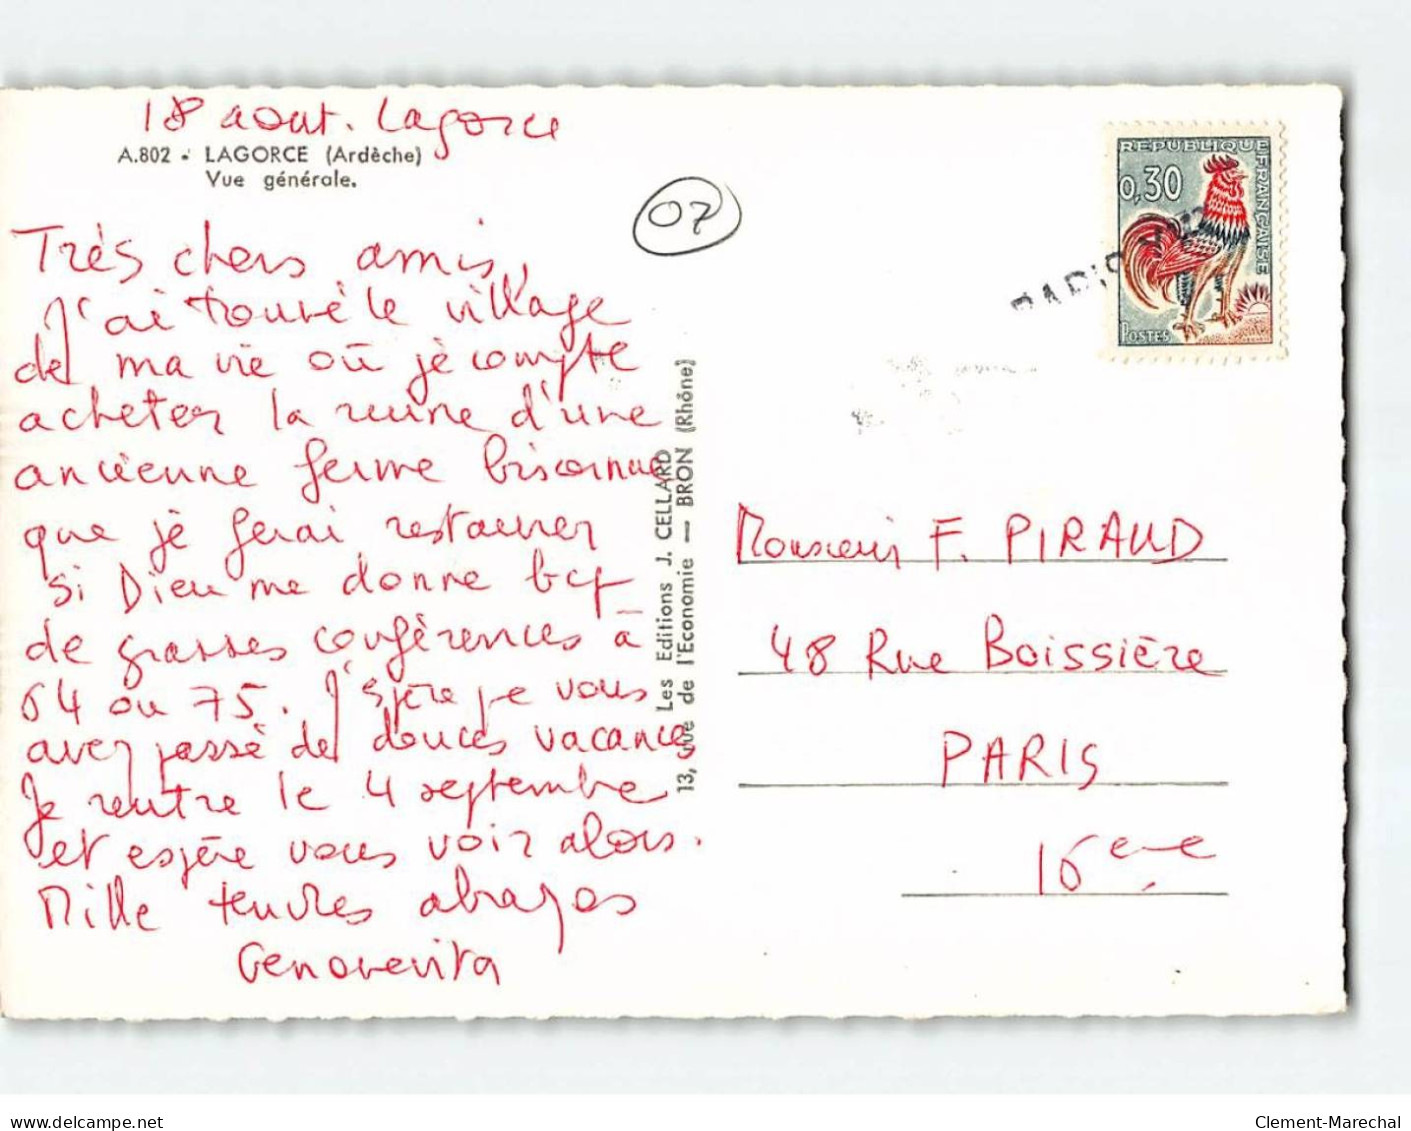 18 aout. Lagorce
A.802 - LAGORCE (Ardèche)
Vue générale.
Très chers amis,
J'ai trouvé le village
de ma vie où je compte
acheter la ruine d'une
ancienne ferme biscornue
que je ferai restaurer
si Dieu me donne bcp
de grasses conférences à
64 ou 75. J'espère que vous
avez passé de douces vacances
Je rentre le 4 septembre
et espère vous voir alors.
Mille tendres abrazos
Genovevita
07
Les Editions J. CELLARD
13, rue de l'Economie — BRON (Rhône)
REPUBLIQUE FRANÇAISE
0,30
POSTES
PARIS
Monsieur F. PIRAUD
48 Rue BOISSIÈRE
PARIS
16eme
www.delcampe.net
Clement-Marechal